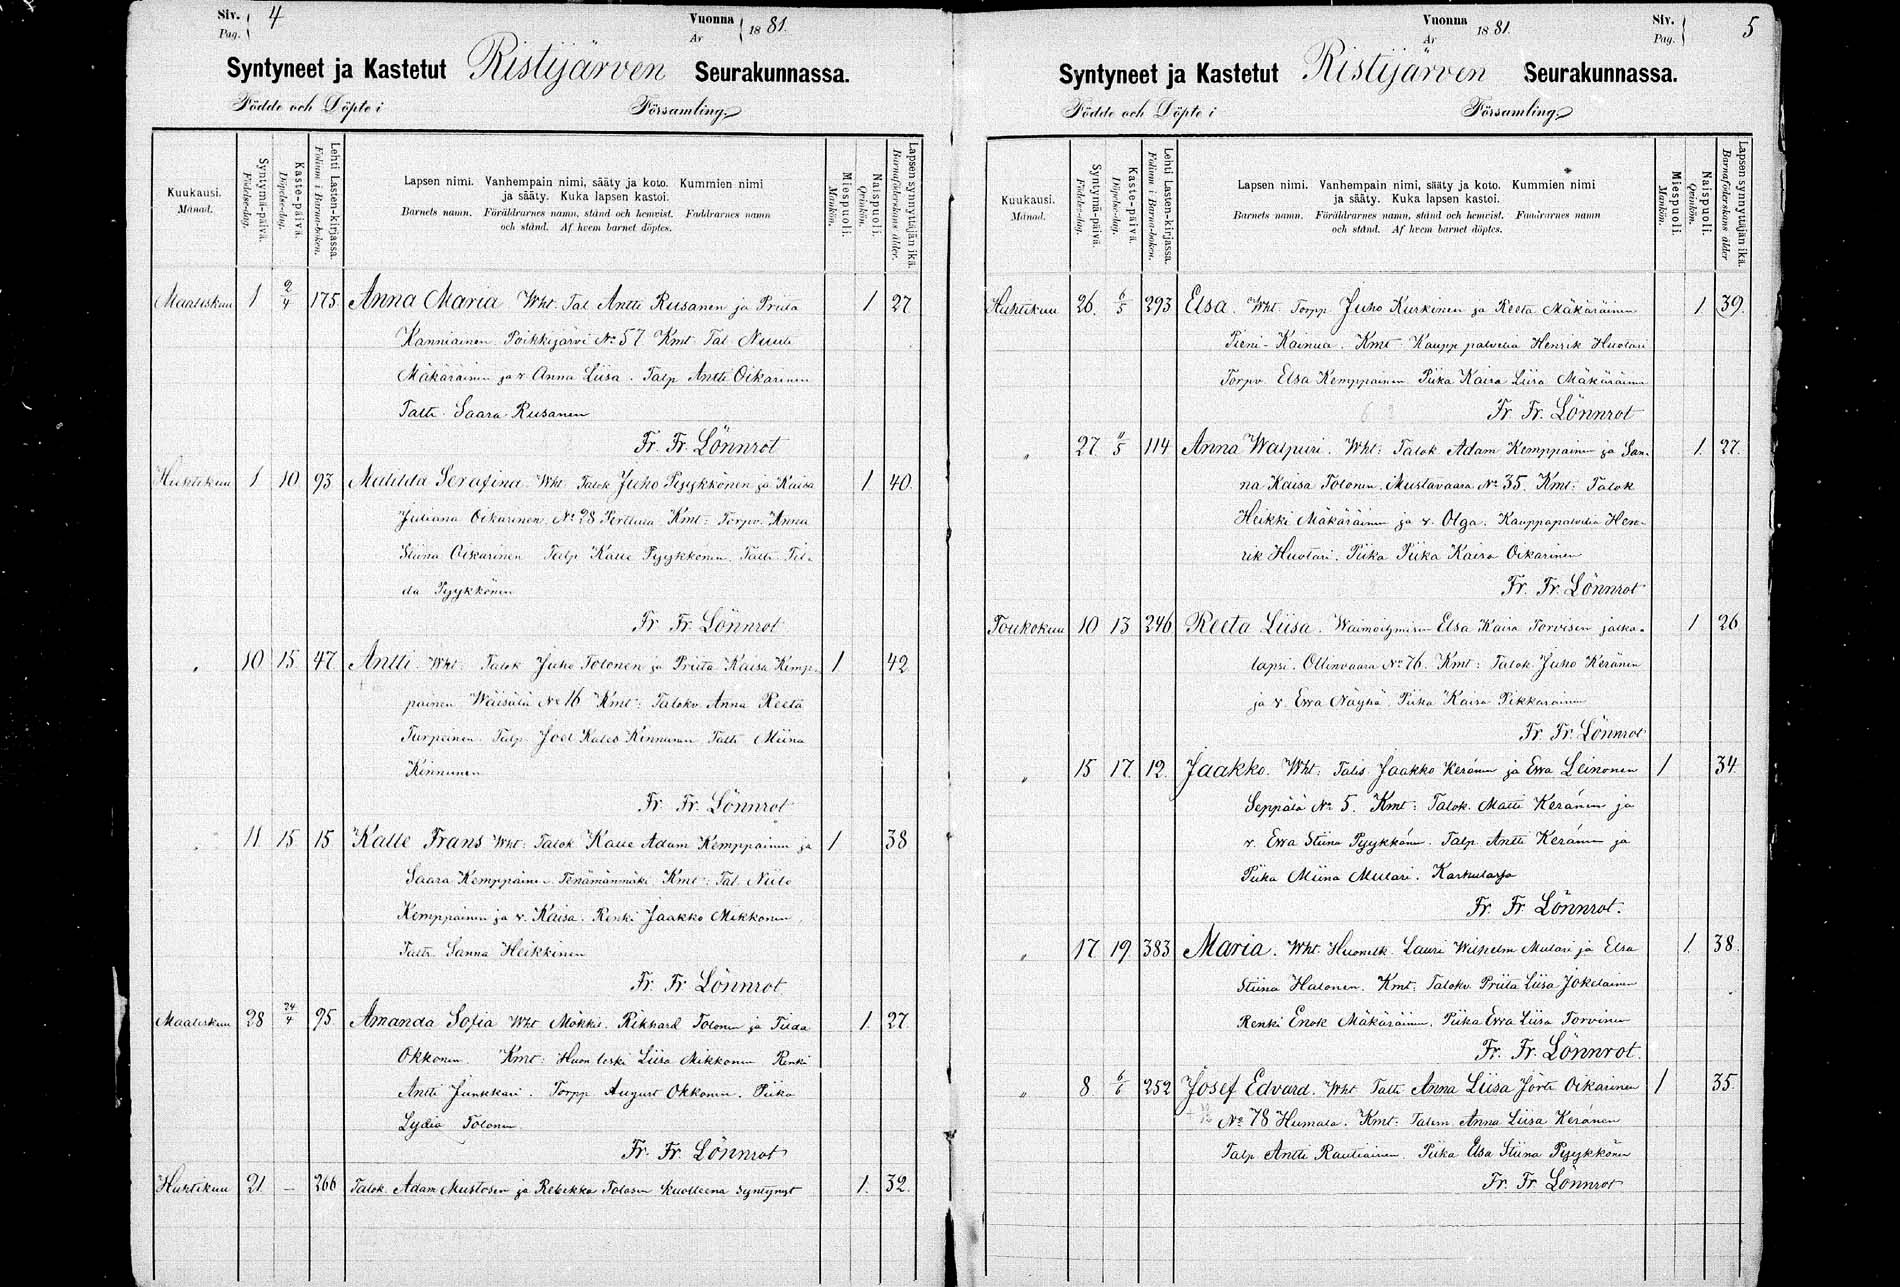 Siv. Pag. 4
Vuonna År 1881.
Syntyneet ja Kastetut Ristijärven Seurakunnassa.
Födde och Döpte i Församling.
Kuukausi. Månad.
Syntymä-päivä. Födelse-dag.
Kaste-päivä. Döpelse-dag.
Lehti Lasten-kirjassa. Folium i Barna-boken.
Lapsen nimi. Vanhempain nimi, sääty ja koto. Kummien nimi
ja sääty. Kuka lapsen kastoi.
Barnets namn. Föräldrarnes namn, stånd och hemvist. Faddrarnes namn
och stånd. Af hvem barnet döptes.
Miespuoli. Mankön.
Naispuoli. Qvinkön.
Lapsen synnyttäjän ikä. Barnaföderskans ålder.
Maaliskuu 1 2/4 175 Anna Maria Wht. Tal Antti Rusanen ja Priita 1 27
Kanniainen Poikkijärvi No 57 Kmt Tal Niilo
Mäkäräinen ja v. Anna Liisa. Talp Antti Oikarinen
Taltr Saara Rusanen
Fr. Fr. Lönnrot
Huhtikuu 1 10 93 Matilda Serafina Wht Talok Juho Pyykkönen ja Kaisa 1 40
Juliana Oikarinen No 28 Perttula Kmt: Torpv. Anna
Stiina Oikarinen Talp Kalle Pyykkönen Taltr Til-
da Pyykkönen
Fr. Fr. Lönnrot
" 10 15 47 Antti Wht: Talok Juho Tolonen ja Priita Kaisa Kemp- 1 42
painen Wäisälä No 16 Kmt: Talokv. Anna Reeta
Turpeinen Talp. Joel Kinnunen Taltr Miina
Kinnunen
Fr. Fr. Lönnrot
" 11 15 15 Kalle Frans Wht: Talok Kalle Adam Kemppainen ja 1 38
Saara Kemppainen Tenämänmäki Kmt: Tal. Niilo
Kemppainen ja v. Kaisa. Renki Jaakko Mikkonen
Taltr. Sanna Heikkinen
Fr. Fr. Lönnrot
Maaliskuu 28 24/4 95 Amanda Sofia Wht Mökkil. Rikhard Tolonen ja Tilda 1 27
Okkonen Kmt: Huon leski Liisa Mikkonen Renki
Antti Junkkari. Torpp August Okkonen. Piika
Lydia Tolonen
Fr. Fr. Lönnrot
Huhtikuu 21 — 266 Talok. Adam Mustosen ja Rebekka Tolosen kuolleena syntynyt 1. 32.
Vuonna År 1881.
Siv. Pag. 5
Syntyneet ja Kastetut Ristijärven Seurakunnassa.
Födde och Döpte i Församling.
Kuukausi. Månad.
Syntymä-päivä. Födelse-dag.
Kaste-päivä. Döpelse-dag.
Lehti Lasten-kirjassa. Folium i Barna-boken.
Lapsen nimi. Vanhempain nimi, sääty ja koto. Kummien nimi
ja sääty. Kuka lapsen kastoi.
Barnets namn. Föräldrarnes namn, stånd och hemvist. Faddrarnes namn
och stånd. Af hvem barnet döptes.
Miespuoli. Mankön.
Naispuoli. Qvinkön.
Lapsen synnyttäjän ikä. Barnaföderskans ålder
Huhtikuu 26. 6/5 293 Elsa. Wht Torpp Juho Kurkinen ja Reeta Mäkäräinen 1 39.
Pieni-Kainua. Kmt Kaupp palvelia Henrik Huotari
Torpv. Elsa Kemppainen Piika Kaisa Liisa Mäkäräinen
Fr. Fr. Lönnrot
" 27 11/5 114 Anna Walpuri. Wht: Talok. Adam Kemppainen ja San- 1. 27.
na Kaisa Tolonen. Mustavaara No 35. Kmt: Talok
Heikki Mäkäräinen ja v. Olga. Kauppapalvelia Hen-
rik Huotari. Piika Piika Kaisa Oikarinen
Fr. Fr. Lönnrot
Toukokuu 10 13 246 Reeta Liisa. Waimoihmisen Elsa Kaisa Torvisen jalka- 1 26
lapsi. Ollinvaara No 76. Kmt: Talok. Juho Keränen
ja v. Ewa Näyhä. Piika Kaisa Pikkarainen
Fr. Fr. Lönnrot
" 15 17 12. Jaakko. Wht: Talis Jaakko Keränen ja Ewa Leinonen 1 34.
Seppälä No 5. Kmt: Talok. Matti Keränen ja
v. Ewa Stiina Pyykkönen. Talp. Antti Keränen ja
Piika Miina Mulari.
Fr. Fr. Lönnrot.
" 17 19. 383 Maria. Wht. Huonelk. Lauri Wilhelm Mulari ja Elsa 1. 38.
Stiina Halonen. Kmt: Talokv. Priita Liisa Jokelainen
Renki Enok Mäkäräinen. Piika Ewa Liisa Torvinen
Fr. Fr. Lönnrot.
" 8. 6/6 252 Josef Edvard. Wht Taltr Anna Liisa Oikarinen 1 35.
No 78 Humala. Kmt: Talem. Anna Liisa Keränen
Talp Antti Rautiainen. Piika Elsa Stiina Pyykkönen
Fr. Fr. Lönnrot